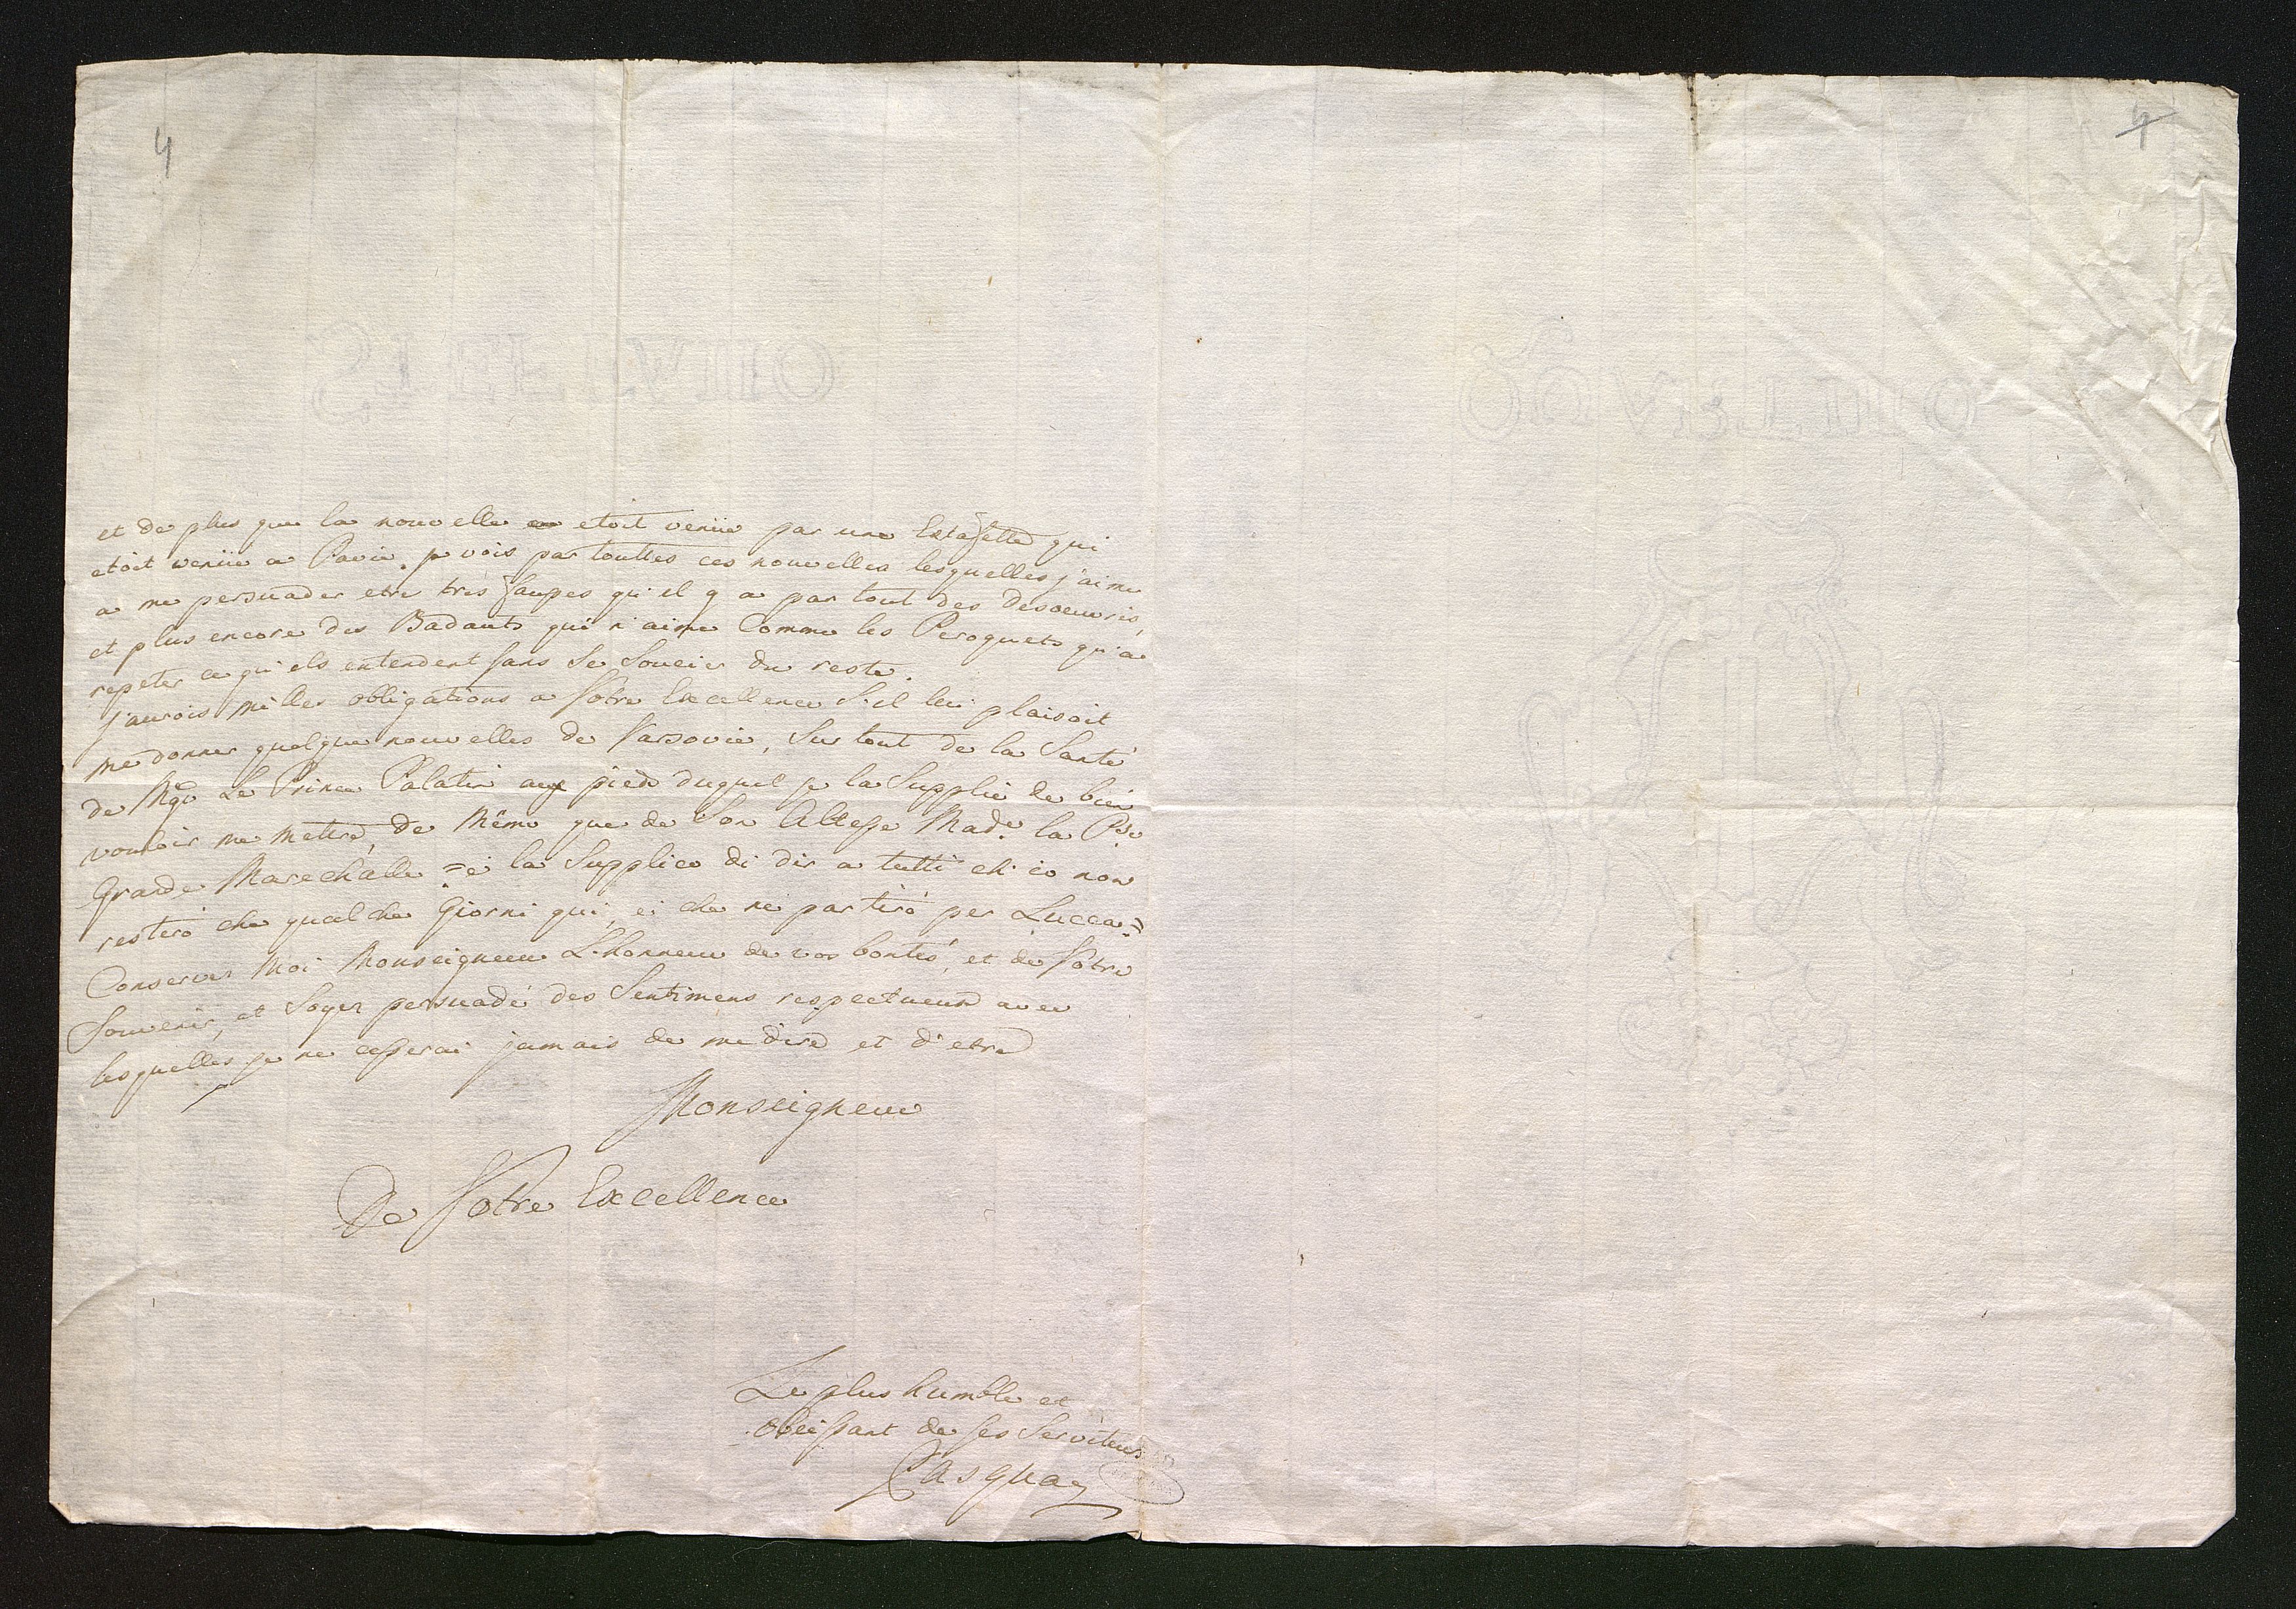 4
et de plus que la nouvelle etoit venüe par une Estafette qui
etoit venüe a Pavie. je vois par touttes ces nouvelles lesquelles j'aime
a me persuader etre tres faupes qu'il y a par tout des desoeuvris,
et plus encore des Badauts qui n'aime Comme les Peroquets qu'a
repeter ce qu'ils entendent sans se soucier du reste.
j'aurois milles obligations a Votre Excellence S'il lui plaisoit
me donner quelque nouvelles de Varsovie, Sur tout de la Santé
de Mgr Le Prince Palatin aux pieds duquel je la Supplie de bien
vouloir me mettre, de Même que de Son Altesse Made. la Psse
Grande Marechalle = è la Supplico di dir a tutti ch'io non
resterò che qualche Giorni qui, ei che ne partirò per Lucca =
Conserves Moi Monseigneur L'honneur de vos bontés, et de Votre
Souvenir, et Soyez persuadé des Sentimens respectueux avec
lesquelles je ne cesserai jamais de me dire et d'etre
Monseigneur
De Votre Excellence
Le plus humble et
obeissant de ses Serviteurs
Casquay
4